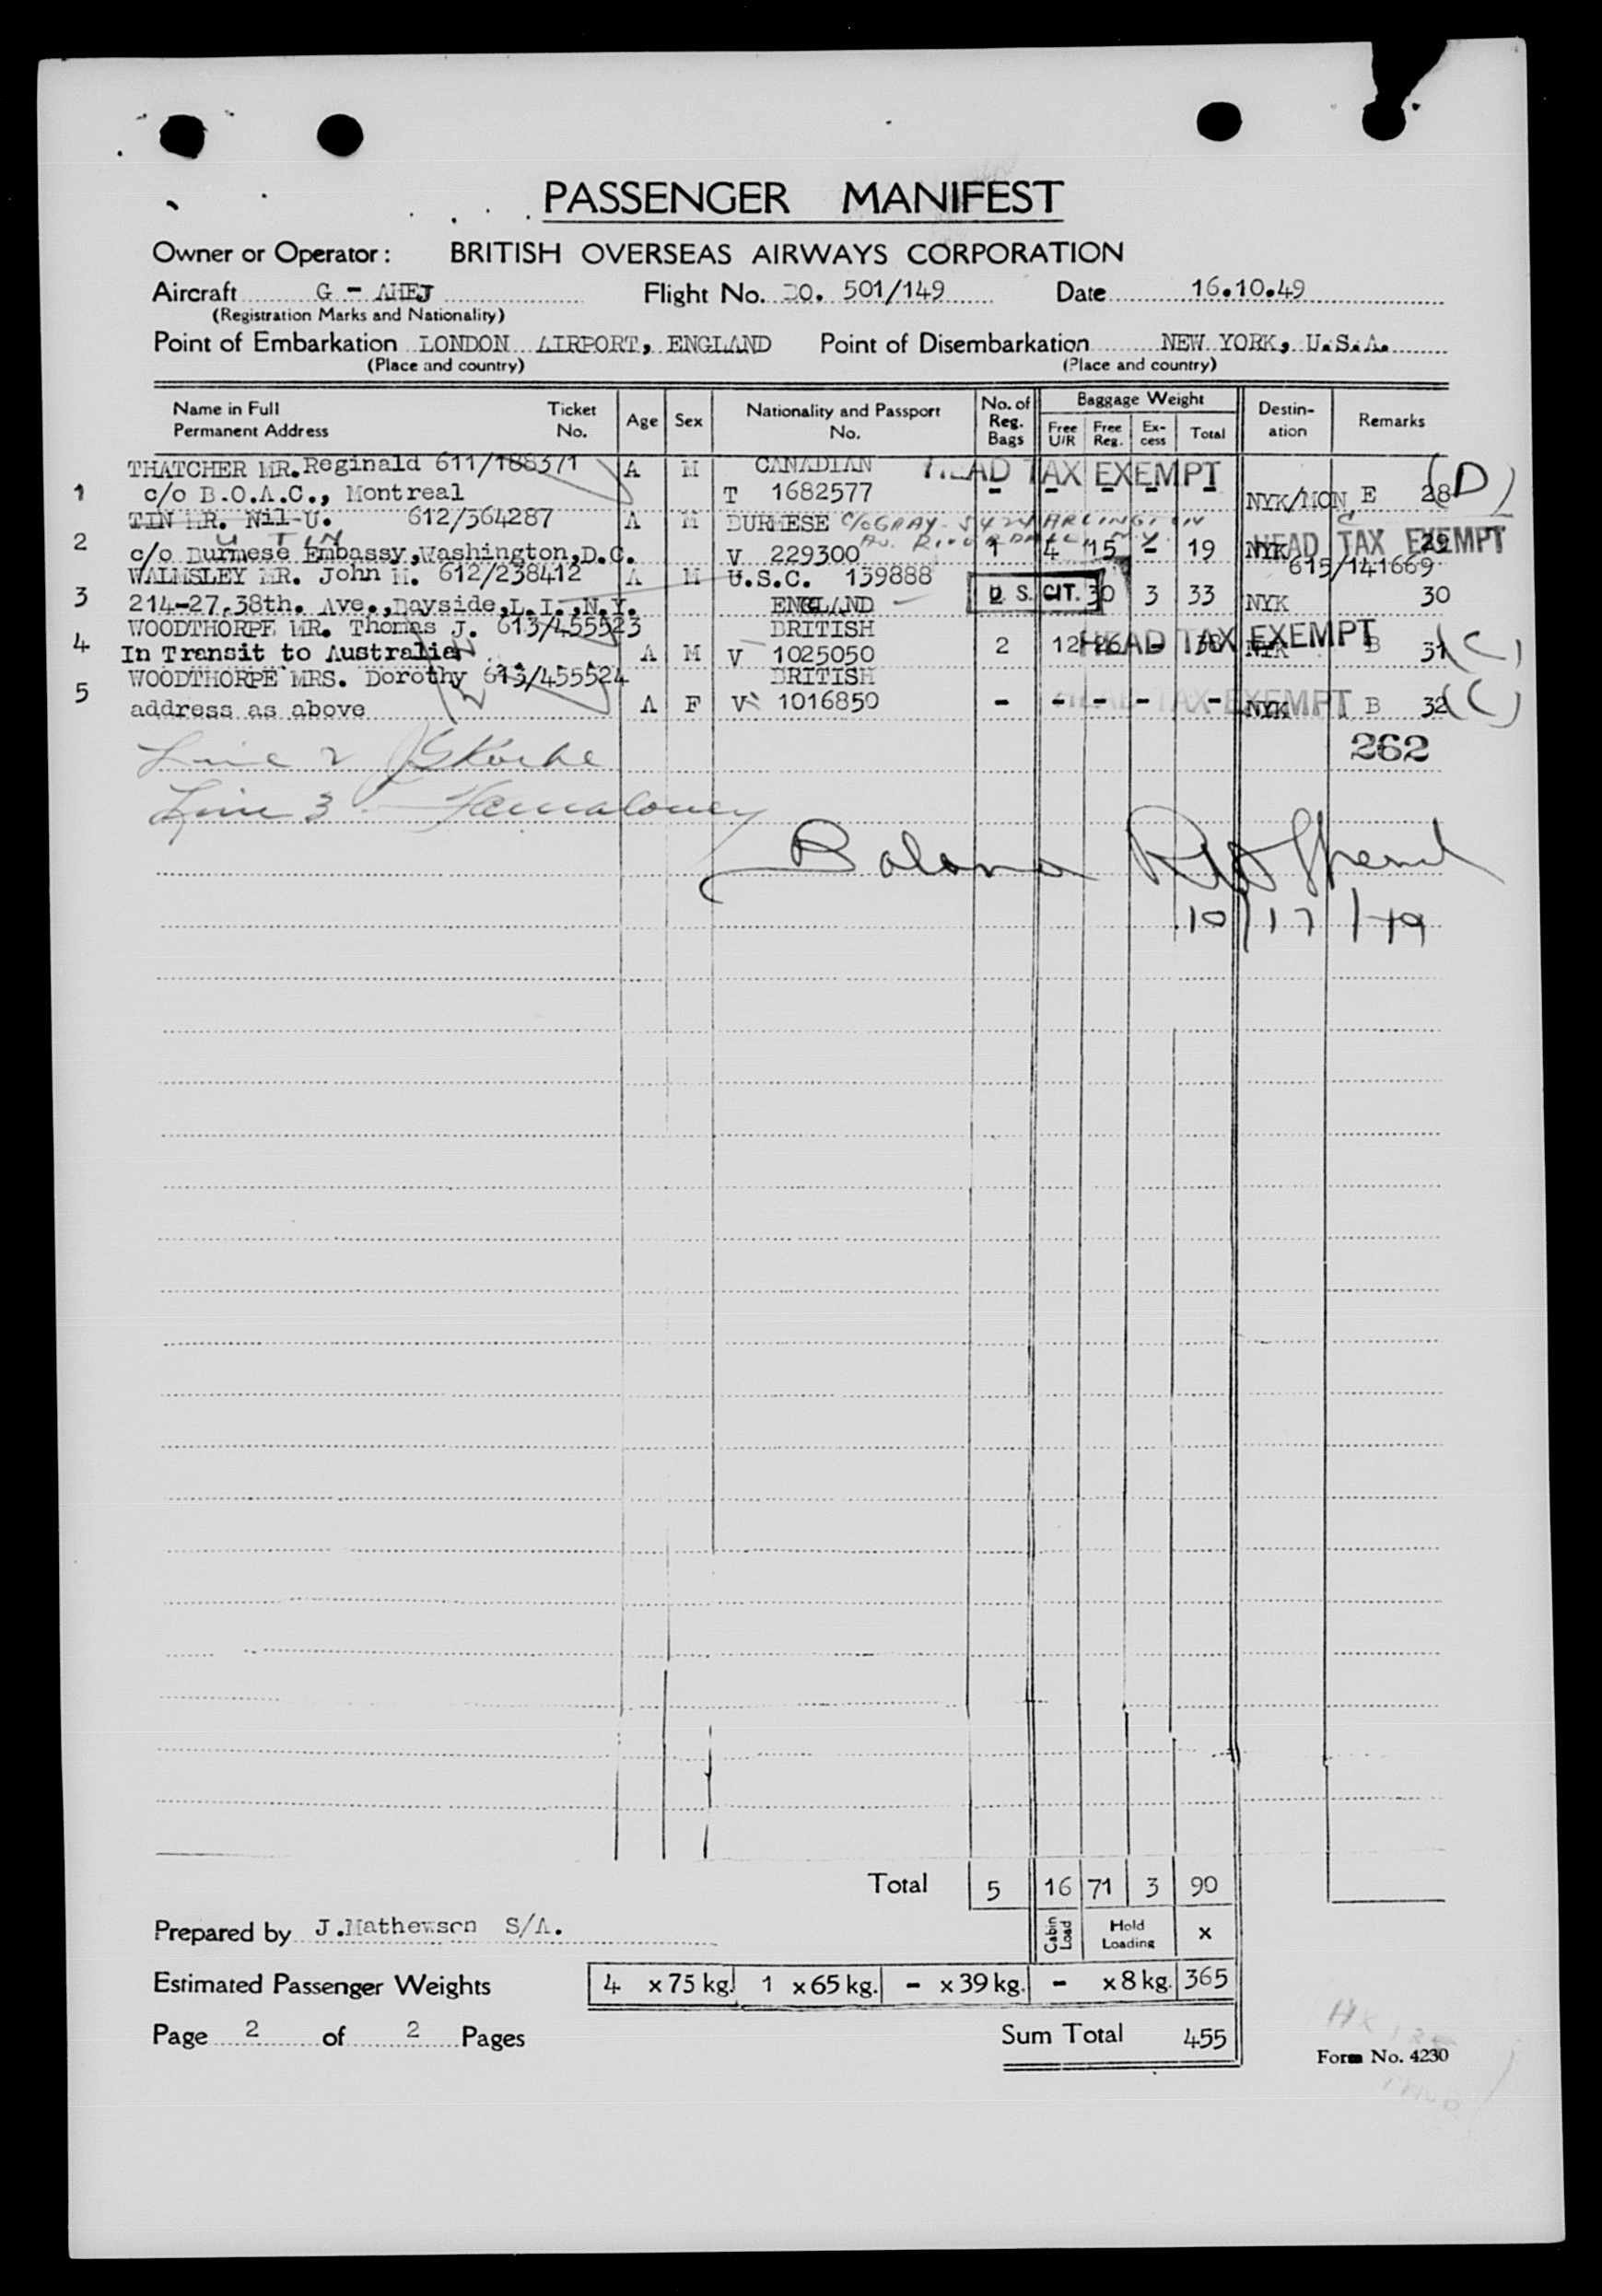 PASSENGER MANIFEST
Owner or Operator: BRITISH OVERSEAS AIRWAYS CORPORATION
Aircraft G - AHEJ Flight No. BO. 501/149 Date 16.10.49
(Registration Marks and Nationality)
Point of Embarkation LONDON AIRPORT, ENGLAND Point of Disembarkation NEW YORK, U.S.A.
(Place and country) (Place and country)
Name in Full Permanent Address Ticket No. Age Sex Nationality and Passport No. No. of Reg. Bags Baggage Weight Free U/R Free Reg. Ex-cess Total Destin-ation Remarks
THATCHER MR. Reginald 611/188371 A M CANADIAN HEAD TAX EXEMPT
1 c/o B.O.A.C., Montreal T 1682577 - - - - - NYK/MON E 28 (D)
TIN MR. Nil-U. 612/364287 A M BURMESE C/O GRAY - 5424 ARLINGTON
U TIN AV. RIVERDALE, N.Y. HEAD TAX EXEMPT
2 c/o Burmese Embassy, Washington, D.C. V 229300 1 4 15 - 19 NYK C 29
WALMSLEY MR. John M. 612/238412 A M U.S.C. 139888 615/141669
3 214-27.38th. Ave., Bayside, L.I., N.Y. ENGLAND 2 U.S. CIT. 30 3 33 NYK 30
WOODTHORPE MR. Thomas J. 613/455523 BRITISH HEAD TAX EXEMPT
4 In Transit to Australia A M V 1025050 2 12 26 - 38 NYK B 31 (C)
WOODTHORPE MRS. Dorothy 613/455524 BRITISH HEAD TAX EXEMPT
5 address as above A F V 1016850 - - - - - NYK B 32 (C)
262
Line 2
Line 3
10/17/49
Total 5 16 71 3 90
Prepared by J.Mathewson S/A. Cabin Load Hold Loading x
Estimated Passenger Weights 4 x 75 kg. 1 x 65 kg. - x 39 kg. - x 8 kg. 365
Page 2 of 2 Pages Sum Total 455
Form No. 4230